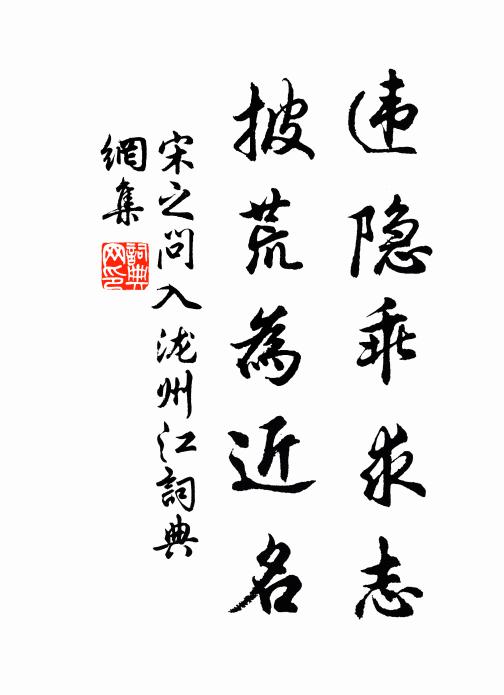 违隐乖求志
披荒為近名
宋之问入泷州江詞典
網集
詞典网印